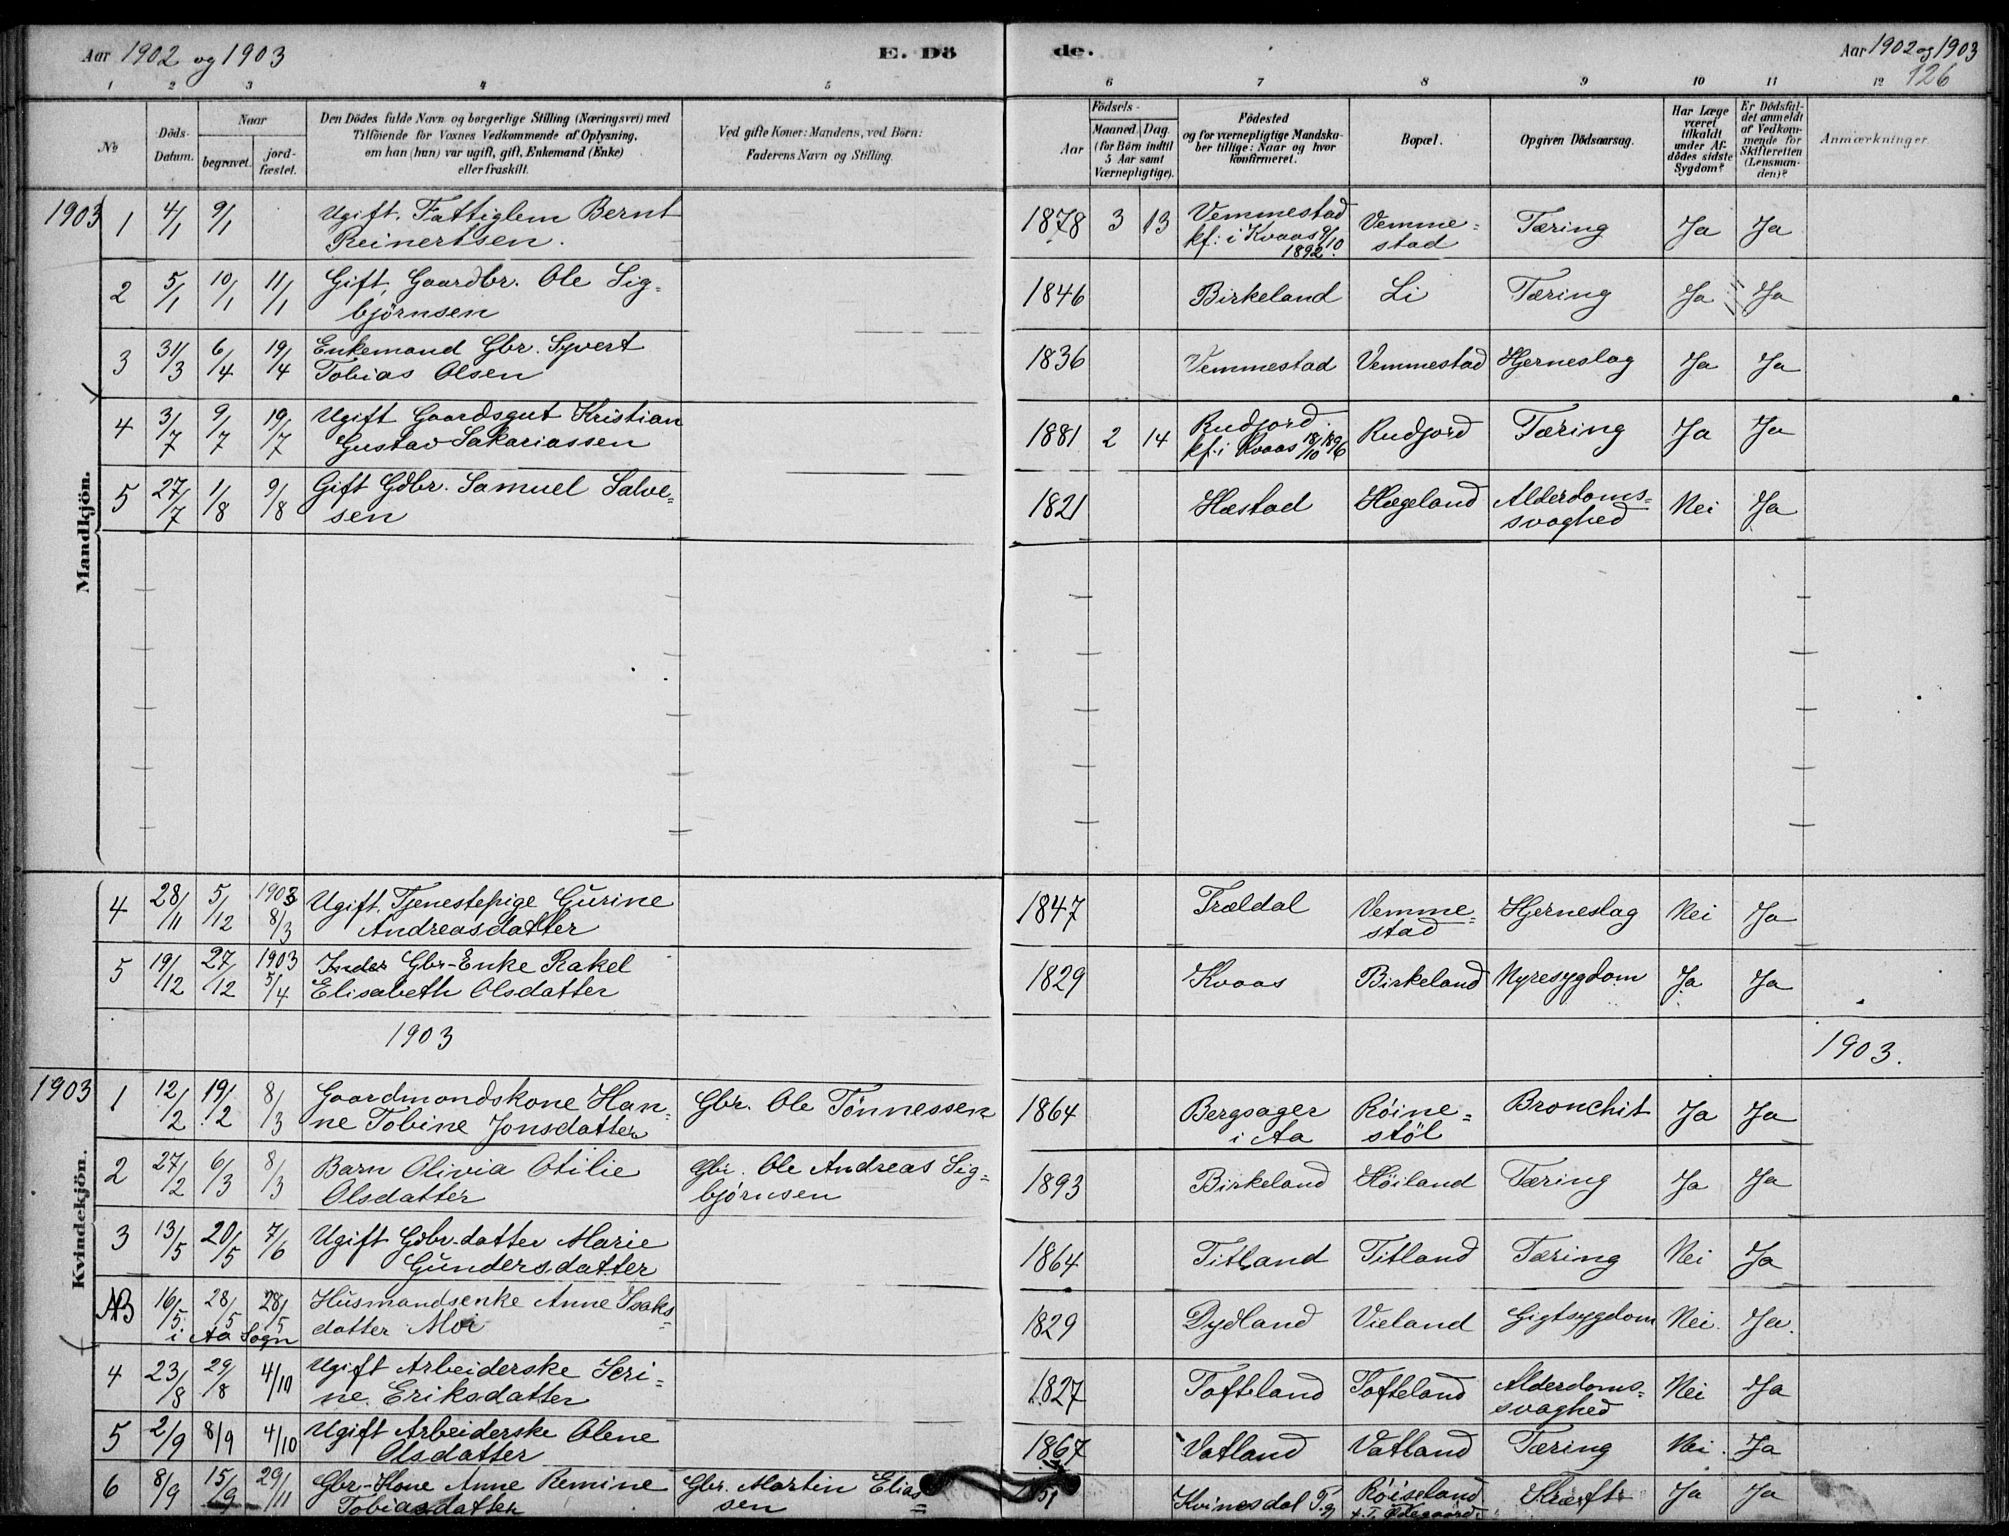 Aar 1902 og 1903 E. Dö de. Aar 1902 og 1903
126
1 2 3 4 5 6 7 8 9 10 11 12
No
Döds-Datum.
Naar
begravet. jord-fæstet.
Den Dödes fulde Navn og borgerlige Stilling (Næringsvei) med
Tilföiende for Voxnes Vedkommende af Oplysning,
om han (hun) var ugift, gift, Enkemand (Enke)
eller fraskilt.
Ved gifte Koner: Mandens, ved Börn:
Faderens Navn og Stilling.
Födsels-
Aar
Maaned. Dag.
(for Börn indtil
5 Aar samt
Værnepligtige).
Födested
og for værnepligtige Mandska-
ber tillige: Naar og hvor
konfirmeret.
Bopæl.
Opgiven Dödsaarsag.
Har Læge
været
tilkaldt
under Af-
dödes sidste
Sygdom?
Er Dödsfal-
det anmeldt
af Vedkom-
mende for
Skifteretten
(Lensman-
den)?
Anmærkninger.
Mandkjön.
1903 1 4/1 9/1 Ugift. Fattiglem Bernt 1878 3 13 Vemmestad Vemme= Tæring Ja Ja
Reinertsen. kf: i Kvaas 9/10 stad
1892.
2 5/1 10/1 11/1 Gift, Gaardbr. Ole Sig= 1846 Birkeland Li Tæring Ja Ja
björnsen
3 31/3 6/4 19/4 Enkemand Gbr. Syvert 1836 Vemmestad Vemmestad Hjerneslag Ja Ja
Tobias Olsen
4 3/7 9/7 19/7 Ugift Gaardsgut Kristian 1881 2 14 Rudjord. Rudjord Tæring Ja Ja
Gustav Sakariassen kf. i Kvaas 18/10 1896
5 27/7 1/8 9/8 Gift Gdbr. Samuel Salve= 1821 Hæstad Hægeland Alderdoms= Nei Ja
sen svaghed
Kvindekjön.
4 28/11 5/12 1903 8/3 Ugift Tjenestepige Gurine 1847 Trældal Vemme= Hjerneslag Nei Ja
Andreasdatter stad
5 19/12 27/12 1903 5/4 Gbr-Enke Rakel 1829 Kvaas Birkeland Nyresygdom Ja Ja
Elisabeth Olsdatter
1903 1903.
1903 1 12/2 19/2 8/3 Gaardmandskone Han= Gbr. Ole Tönnessen 1864 Bergsager Röine= Bronchit Ja Ja
ne Tobine Jonsdatter i Aa stöl
2 27/2 6/3 8/3 Barn Olivia Otilie Gbr. Ole Andreas Sig= 1893 Birkeland Höiland Tæring Ja Ja
Olsdatter björnsen
3 13/5 20/5 7/6 Ugift Gdbr.datter Marie 1864 Titland Titland Tæring Nei Ja
Gundersdatter
NB 16/5 28/5 28/5 Husmandsenke Anne Isaks= 1829 Dydland Vieland Gigtsygdom Nei. Ja.
i Aa Sogn datter Moi
4 23/8 29/8 4/10 Ugift Arbeiderske Seri= 1827 Tofteland Tofteland Alderdoms= Nei Ja
ne Eriksdatter svaghed
5 2/9 8/9 4/10 Ugift Arbeiderske Olene 1867 Vatland Vatland Tæring Nei. Ja
Olsdatter
6 8/9 15/9 29/11 Gbr-Kone Anne Remine Gbr. Martin Elias= 51 Kvinesdal Röiseland Kræft Ja Ja
Tobiasdatter sen